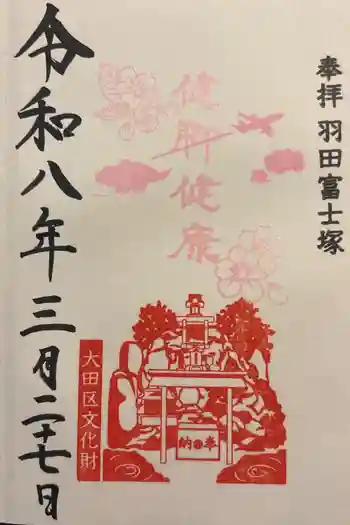 奉拝 羽田富士塚
健脚健康
令和八年三月二十七日
大田区文化財
奉納